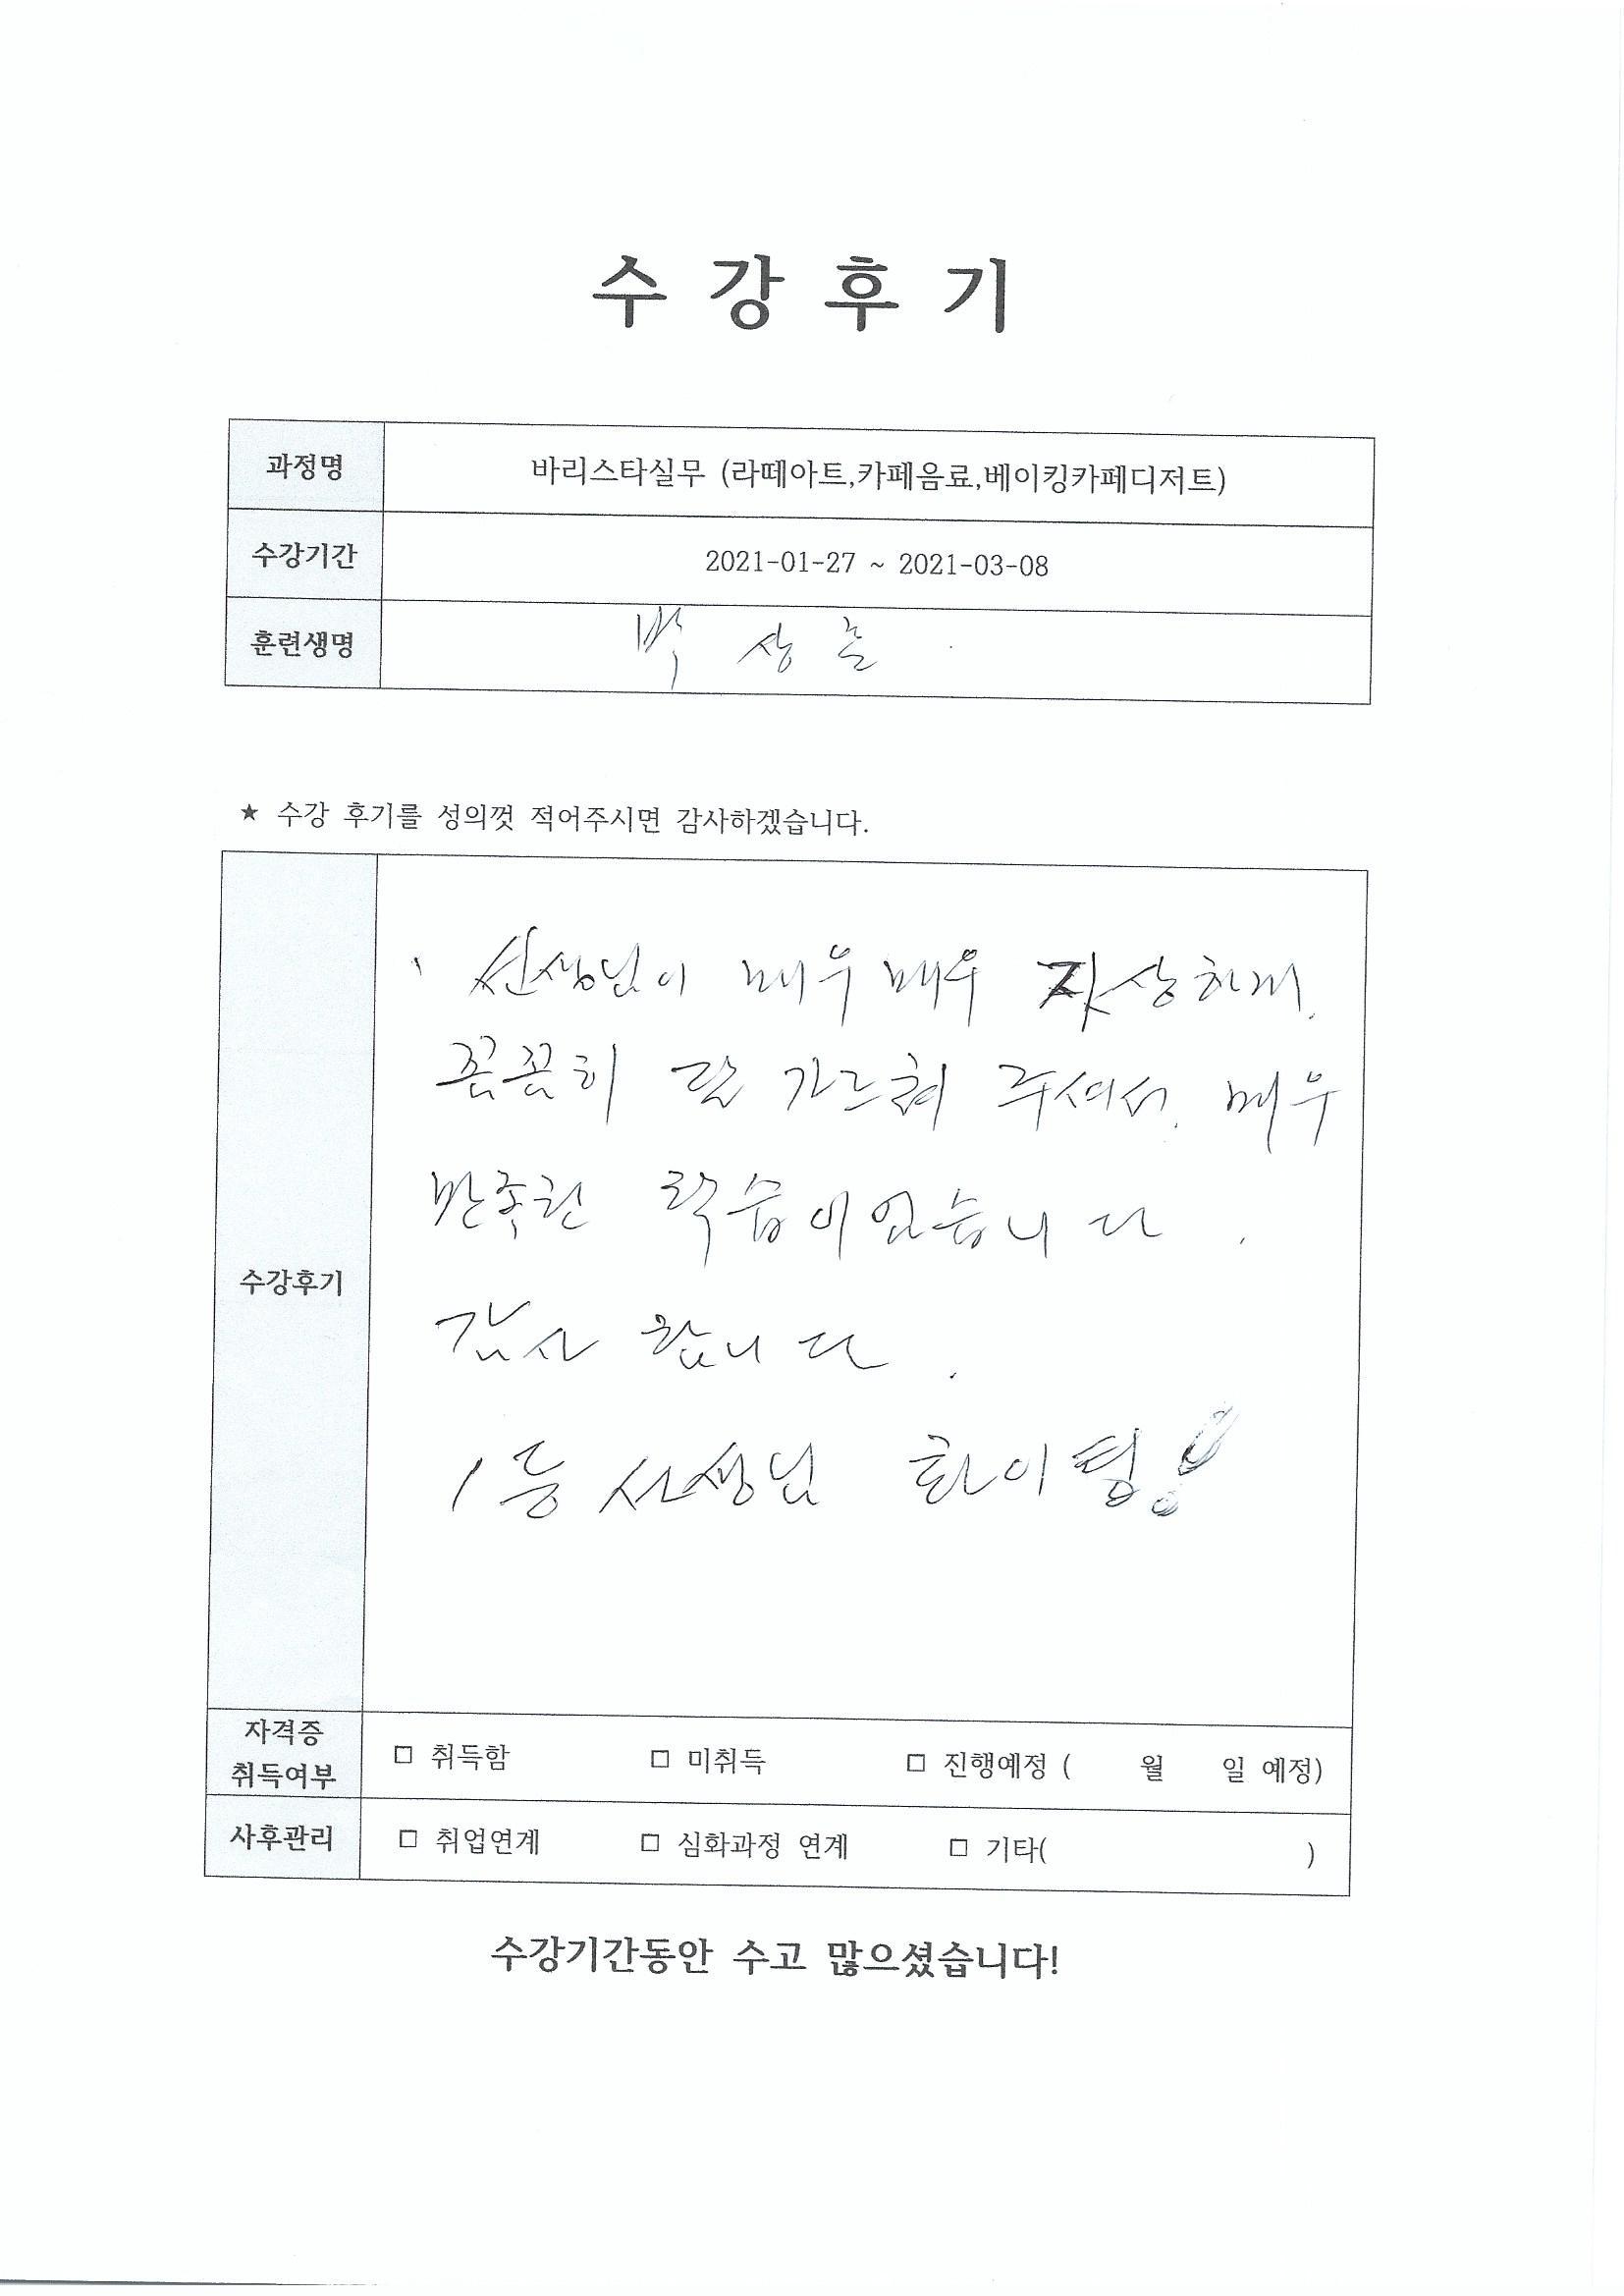 수 강 후 기
과정명 바리스타실무 (라떼아트,카페음료,베이킹카페디저트)
수강기간 2021-01-27 ~ 2021-03-08
훈련생명 박 상
★ 수강 후기를 성의껏 적어주시면 감사하겠습니다.
수강후기
선생님이 매우 매우 자상하게.
꼼꼼히 잘 가르쳐 주셔서. 매우
만족한 학습이었습니다.
감사 합니다.
1등 선생님 화이팅!
자격증
취득여부 □ 취득함 □ 미취득 □ 진행예정 ( 월 일 예정)
사후관리 □ 취업연계 □ 심화과정 연계 □ 기타( )
수강기간동안 수고 많으셨습니다!